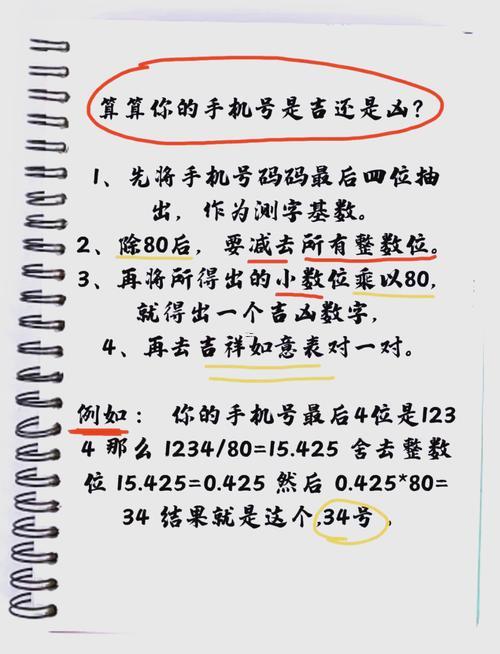 算算你的手机号是吉还是凶？
1、先将手机号码码最后四位抽
出，作为测字基数。
2、除80后，要减去所有整数位。
3、再将所得出的小数位乘以80，
就得出一个吉凶数字，
4、再去吉祥如意表对一对。
例如： 你的手机号最后4位是123
4 那么 1234/80=15.425 舍去整数
位 15.425=0.425 然后 0.425*80=
34 结果就是这个,34号 ，